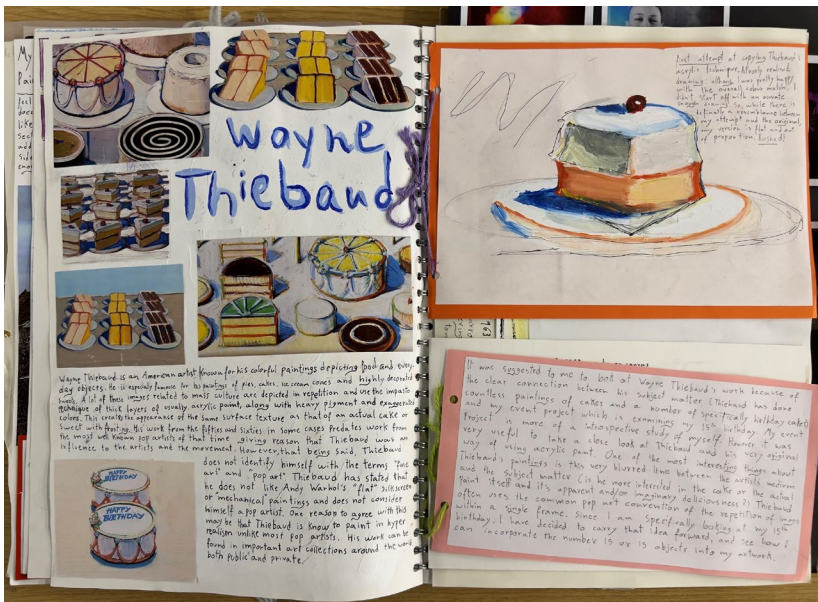 Wayne
Thiebaud
Wayne Thiebaud is an American artist known for his colorful paintings depicting food and every-
day objects. He is especially famouse for his paintings of pies, cakes, ice cream cones and highly decorated
sweets. A lot of these images related to mass culture are depicted in repetition and use the impasto
technique of thick layers of usually acrylic paint, along with heavy pigment and exaggerated
colors. This creates the appearance of the same surface texture as that of an actual cake or
sweet with frosting. His work from the fifties and sixties in some cases predates work from
the most well known pop artists of that time giving reason that Thiebaud was an
influence to the artists and the movement. However, that being said, Thiebaud
does not identify himself with the terms "fine
art" and "pop art" Thiebaud has stated that
he does not like Andy Warhol's "flat" silkscreen
or "mechanical" paintings and does not consider
himself a pop artist. One reason to agree with this
may be that Thiebaud is know to paint in hyper
realism unlike most pop artists. His work can be
found in important art collections around the world
both public and private.
HAPPY
BIRTHDAY
HAPPY
BIRTHDAY
First attempt at copying Thiebaud's
acrylic technique.
drawing although I was pretty happy
with the overall colour match, I
didn't start off with an acurate
enough drawing. So, while there is
a resemblance between
my attempt and the original,
my version is flat and out
of proportion.
1963
It was suggested to me to look at Wayne Thiebaud's work because of
the clear connection between his subject matter (Thiebaud has done
countless paintings of cakes and a number of specifically birthday cake)
and my event project which is examining my 15th birthday. My event
Project is more of a introspective study of myself. However it was
very useful to take a close look at Thiebaud and his very original
way of using acrylic paint. One of the most interesting things about
Thiebaud's paintings is this very blurred line between the artists medium
and the subject matter (is he more interested in the cake or the actual
paint itself and its apparent and/or imaginary deliciousness?) Thiebaud
often uses the common pop art convention of the repetition of image
within a single frame. Since I am specifically looking at my 15th
birthday, I have decided to carry that idea forward, and see how I
can incorporate the number 15 or 15 objects into my artwork.